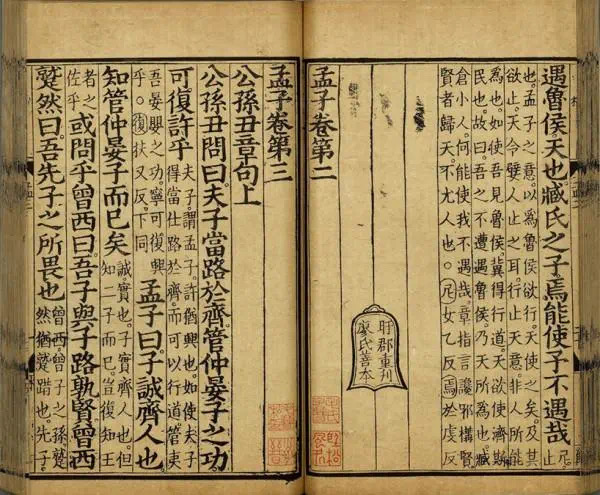 遇魯侯天也臧氏之子焉能使子不遇哉尼止
也孟子之意以為魯侯欲行天使之矣及其
欲止天令嬖人止之耳行止天意非人所能
為也如使吾見魯侯冀得行道天欲使濟斯
民也故曰吾之不遭遇魯侯乃天所為也臧
倉小人何能使我不遇哉章指言讒邪構賢
賢者歸天不尤人也。尼女乙反焉於虔反
盱郡重刊
廖氏善本
孟子卷第二
孟子卷第三
公孫丑章句上
公孫丑問曰夫子當路於齊管仲晏子之功
可復許乎夫子謂孟子許猶興也如使夫子得當仕路於齊而可以行道管夷
吾晏嬰之功寧可復興乎。復扶又反下同孟子曰子誠齊人也
知管仲晏子而已矣誠實也子實齊人也但知二子而已豈復知王
者之佐乎或問乎曾西曰吾子與子路孰賢曾西
蹵然曰吾先子之所畏也曾西曾子之孫蹵然猶蹵踖也先子